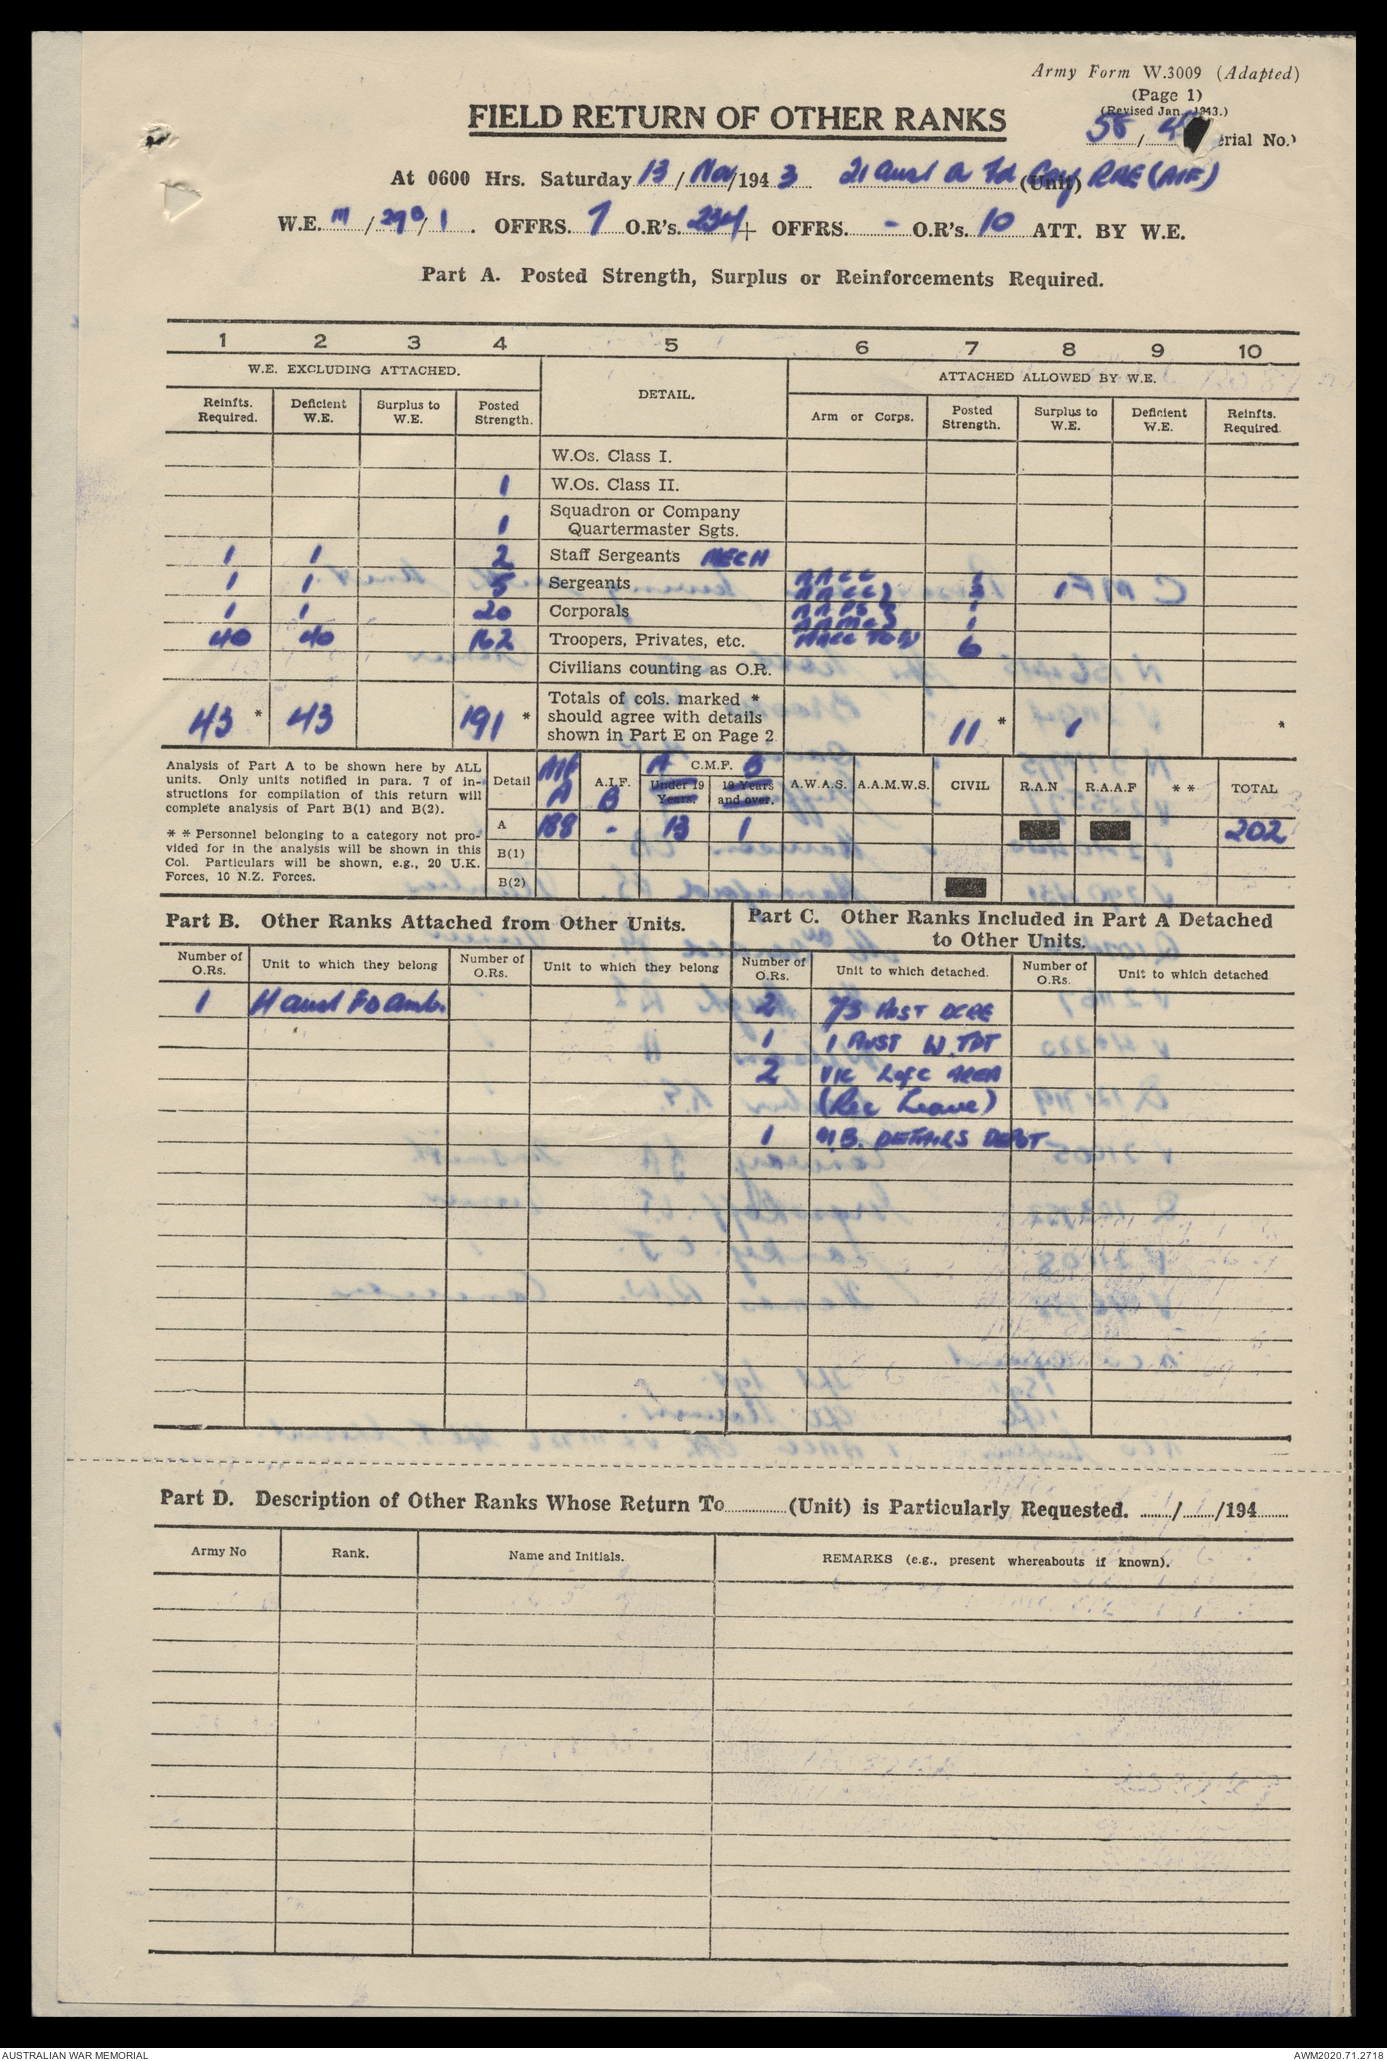 Army Form W.3009 (Adapted)
(Page 1)
(Revised Jan., 1943.)
FIELD RETURN OF OTHER RANKS
58 / erial No.)
At 0600 Hrs. Saturday 13 / Nov /194 3 21 Aust (Unit) Coy RAE (AIF)
W.E. III / 29B / 1 . OFFRS. 7 O.R's. 234 + OFFRS. - O.R's. 10 ATT. BY W.E.
Part A. Posted Strength, Surplus or Reinforcements Required.
1 2 3 4 5 6 7 8 9 10
W.E. EXCLUDING ATTACHED. DETAIL. ATTACHED ALLOWED BY W.E.
Reinfts. Required. Deficient W.E. Surplus to W.E. Posted Strength. Arm or Corps. Posted Strength. Surplus to W.E. Deficient W.E. Reinfts. Required.
W.Os. Class I.
1 W.Os. Class II.
1 Squadron or Company Quartermaster Sgts.
1 1 2 Staff Sergeants MECH
1 1 5 Sergeants AACC 1
AACC 3 1
1 1 20 Corporals 1
AAMC 1
40 40 162 Troopers, Privates, etc. AACC 6
Civilians counting as O.R.
43 * 43 191 * Totals of cols. marked * should agree with details shown in Part E on Page 2 11 * 1 *
Analysis of Part A to be shown here by ALL units. Only units notified in para. 7 of instructions for compilation of this return will complete analysis of Part B(1) and B(2).
* * Personnel belonging to a category not provided for in the analysis will be shown in this Col. Particulars will be shown, e.g., 20 U.K. Forces, 10 N.Z. Forces.
Detail AIF A A.I.F. B A C.M.F. B Under 19 Years. 19 Years and over. A.W.A.S. A.A.M.W.S. CIVIL R.A.N R.A.A.F * * TOTAL
A 188 - 13 1 202
B(1)
B(2)
Part B. Other Ranks Attached from Other Units.
Part C. Other Ranks Included in Part A Detached to Other Units.
Number of O.Rs. Unit to which they belong Number of O.Rs. Unit to which they belong Number of O.Rs. Unit to which detached. Number of O.Rs. Unit to which detached
1 Aust Fd Amb. 2 HOST DCRE
1 1 AUST W. TPT
2 VIC L of C AREA
(Rec Leave)
1 M.B. DETAILS DEPOT
Part D. Description of Other Ranks Whose Return To (Unit) is Particularly Requested. / /194
Army No Rank. Name and Initials. REMARKS (e.g., present whereabouts if known).
AUSTRALIAN WAR MEMORIAL AWM2020.71.2718